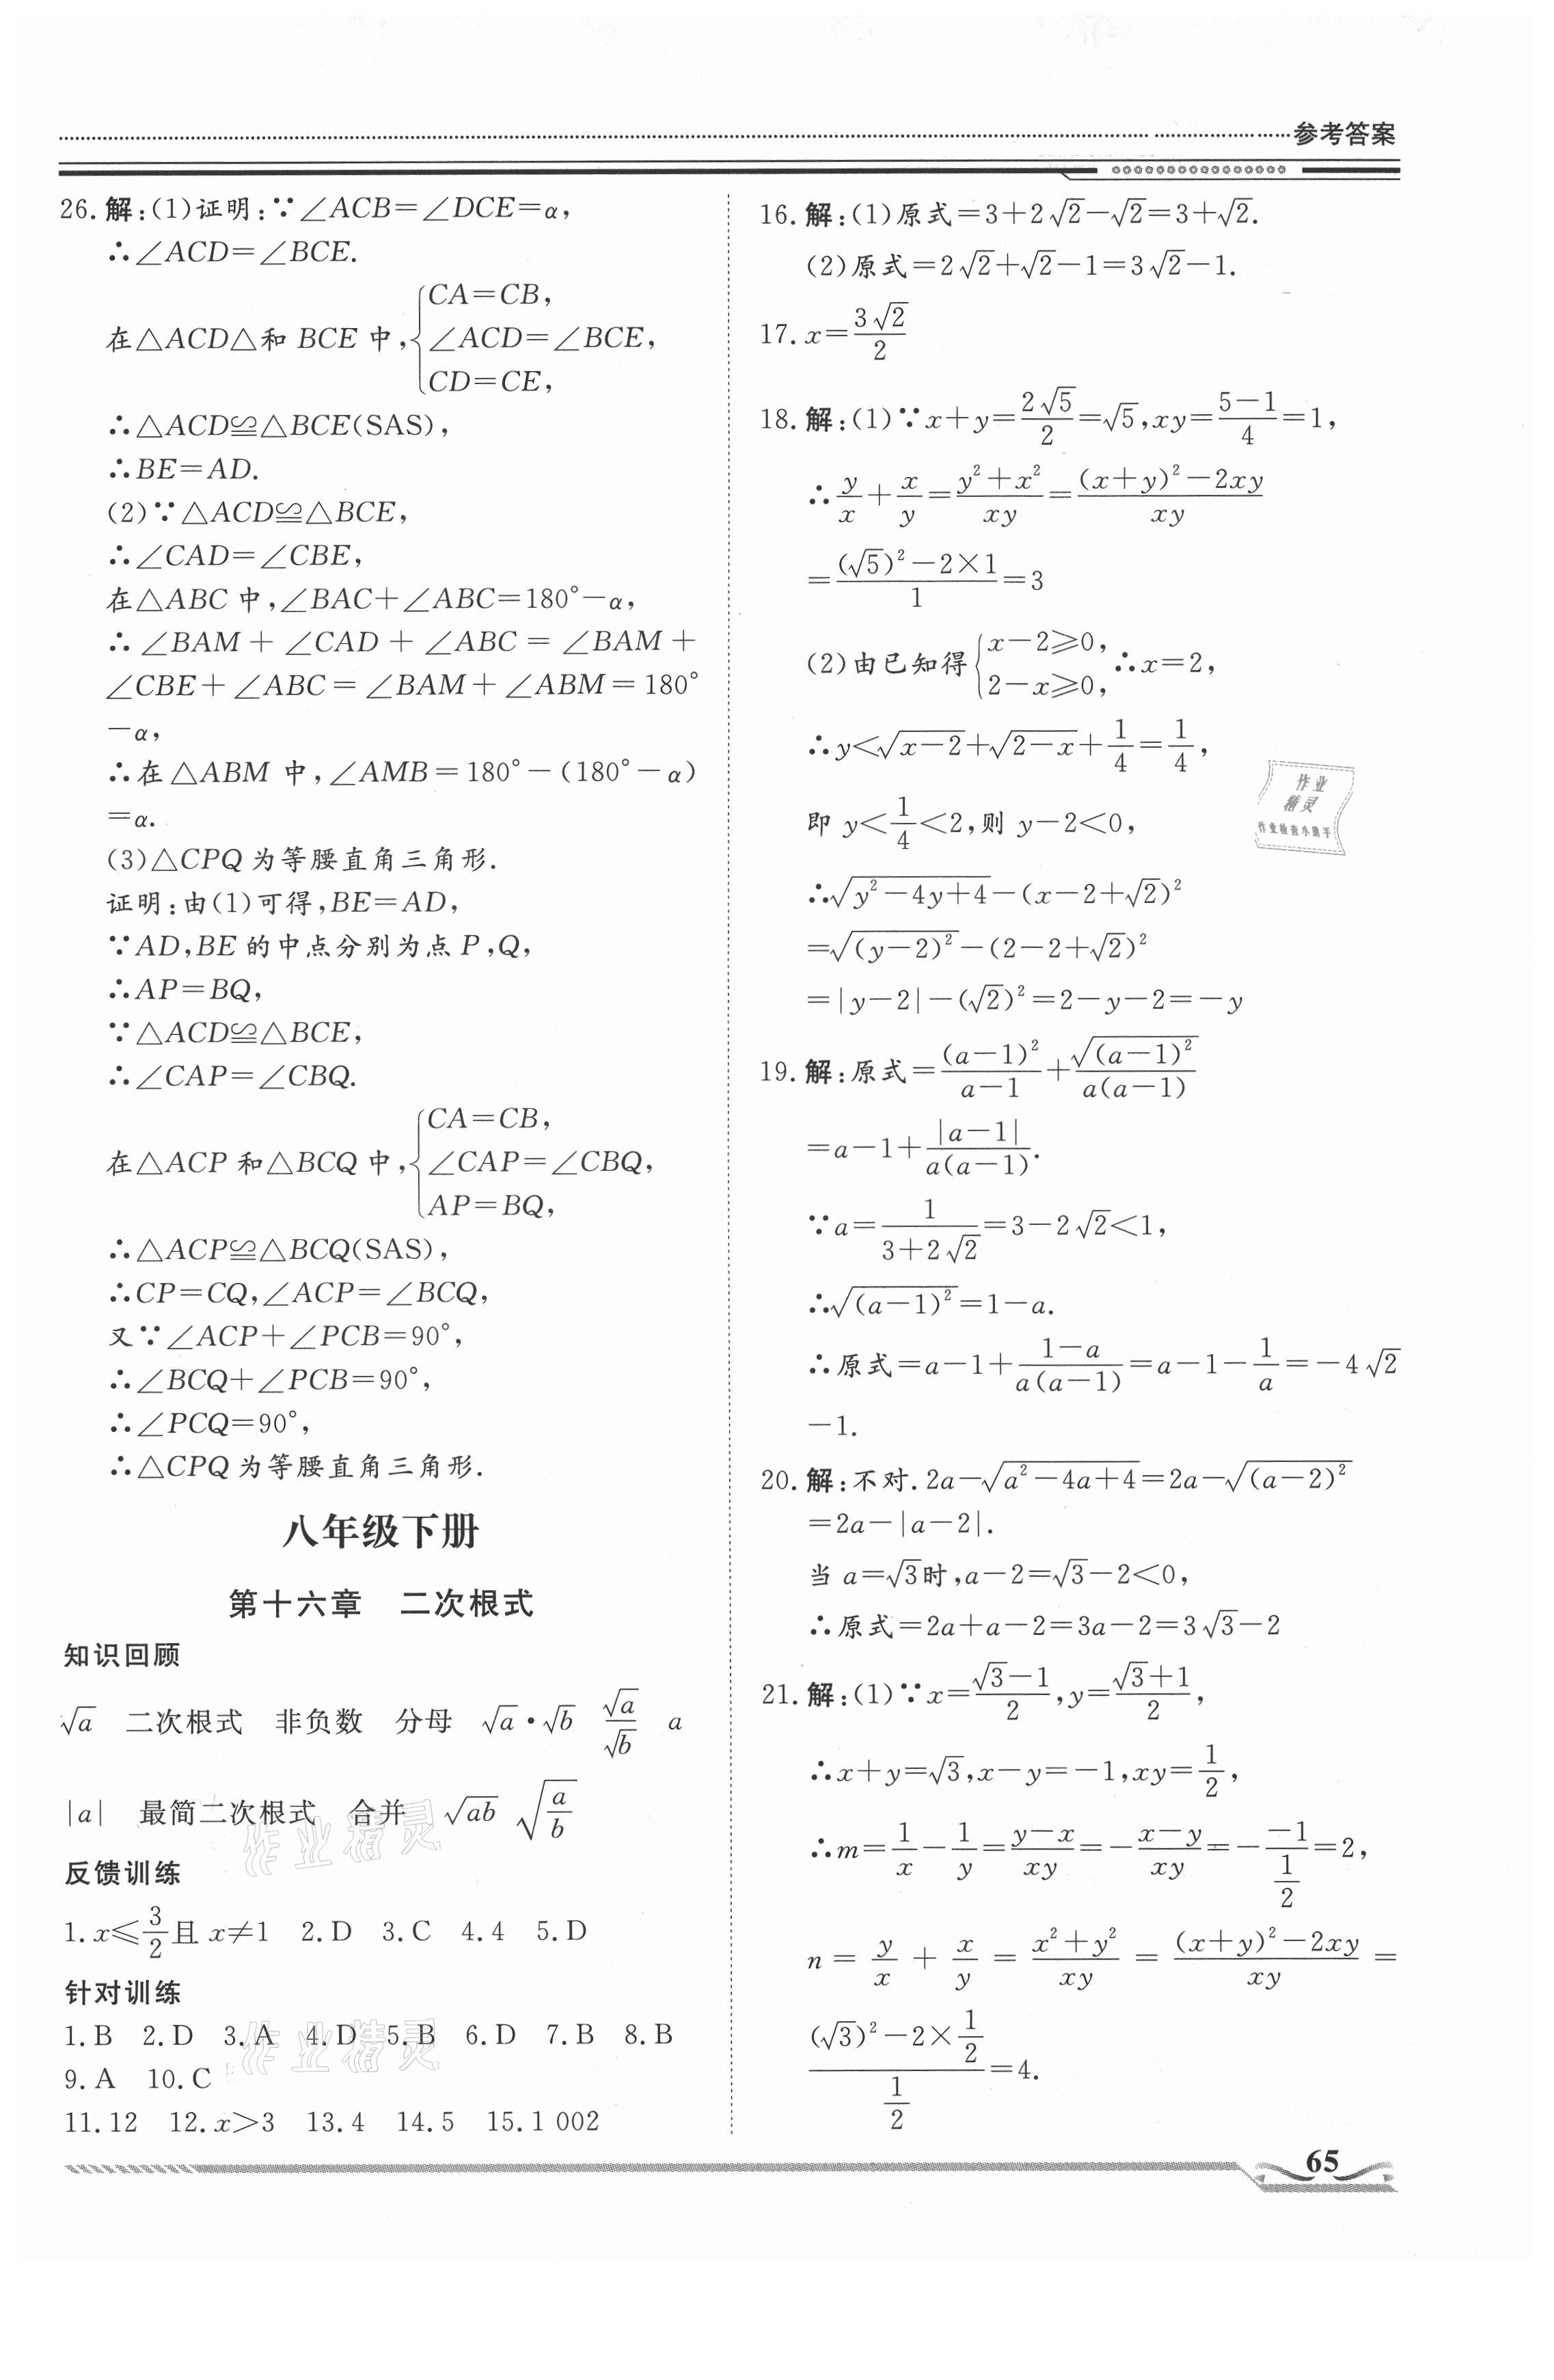 参考答案
26. 解:(1)证明:∵∠ACB=∠DCE=α,
∴∠ACD=∠BCE.
在△ACD△和 BCE 中,{CA=CB, ∠ACD=∠BCE, CD=CE,
∴△ACD≌△BCE(SAS),
∴BE=AD.
(2)∵△ACD≌△BCE,
∴∠CAD=∠CBE,
在△ABC 中,∠BAC+∠ABC=180°-α,
∴∠BAM+∠CAD+∠ABC=∠BAM+
∠CBE+∠ABC=∠BAM+∠ABM=180°
-α,
∴在△ABM 中,∠AMB=180°-(180°-α)
=α.
(3)△CPQ 为等腰直角三角形.
证明:由(1)可得,BE=AD,
∵AD,BE 的中点分别为点 P,Q,
∴AP=BQ,
∵△ACD≌△BCE,
∴∠CAP=∠CBQ.
在△ACP 和△BCQ 中,{CA=CB, ∠CAP=∠CBQ, AP=BQ,
∴△ACP≌△BCQ(SAS),
∴CP=CQ,∠ACP=∠BCQ,
又∵∠ACP+∠PCB=90°,
∴∠BCQ+∠PCB=90°,
∴∠PCQ=90°,
∴△CPQ 为等腰直角三角形.
八年级下册
第十六章 二次根式
知识回顾
√a 二次根式 非负数 分母 √a·√b √a/√b a
|a| 最简二次根式 合并 √(ab) √(a/b)
反馈训练
1. x≤3/2且 x≠1 2. D 3. C 4. 4 5. D
针对训练
1. B 2. D 3. A 4. D 5. B 6. D 7. B 8. B
9. A 10. C
11. 12 12. x>3 13. 4 14. 5 15. 1 002
16. 解:(1)原式=3+2√2-√2=3+√2.
(2)原式=2√2+√2-1=3√2-1.
17. x=3√2/2
18. 解:(1)∵x+y=2√5/2=√5,xy=(5-1)/4=1,
∴y/x+x/y=(y²+x²)/xy=((x+y)²-2xy)/xy
=((√5)²-2×1)/1=3
(2)由已知得{x-2≥0, 2-x≥0, ∴x=2,
∴y<√(x-2)+√(2-x)+1/4=1/4,
即 y<1/4<2,则 y-2<0,
∴√(y²-4y+4)-(x-2+√2)²
=√((y-2)²)-(2-2+√2)²
=|y-2|-(√2)²=2-y-2=-y
19. 解:原式=(a-1)²/(a-1)+√((a-1)²)/(a(a-1))
=a-1+|a-1|/(a(a-1)).
∵a=1/(3+2√2)=3-2√2<1,
∴√((a-1)²)=1-a.
∴原式=a-1+(1-a)/(a(a-1))=a-1-1/a=-4√2
-1.
20. 解:不对. 2a-√(a²-4a+4)=2a-√((a-2)²)
=2a-|a-2|.
当 a=√3时,a-2=√3-2<0,
∴原式=2a+a-2=3a-2=3√3-2
21. 解:(1)∵x=(√3-1)/2,y=(√3+1)/2,
∴x+y=√3,x-y=-1,xy=1/2,
∴m=1/x-1/y=(y-x)/xy=-(x-y)/xy=-(-1)/(1/2)=2,
n=y/x+x/y=(x²+y²)/xy=((x+y)²-2xy)/xy=
((√3)²-2×1/2)/(1/2)=4.
作业
精灵
作业检查小助手
作业精灵
作业精灵
65